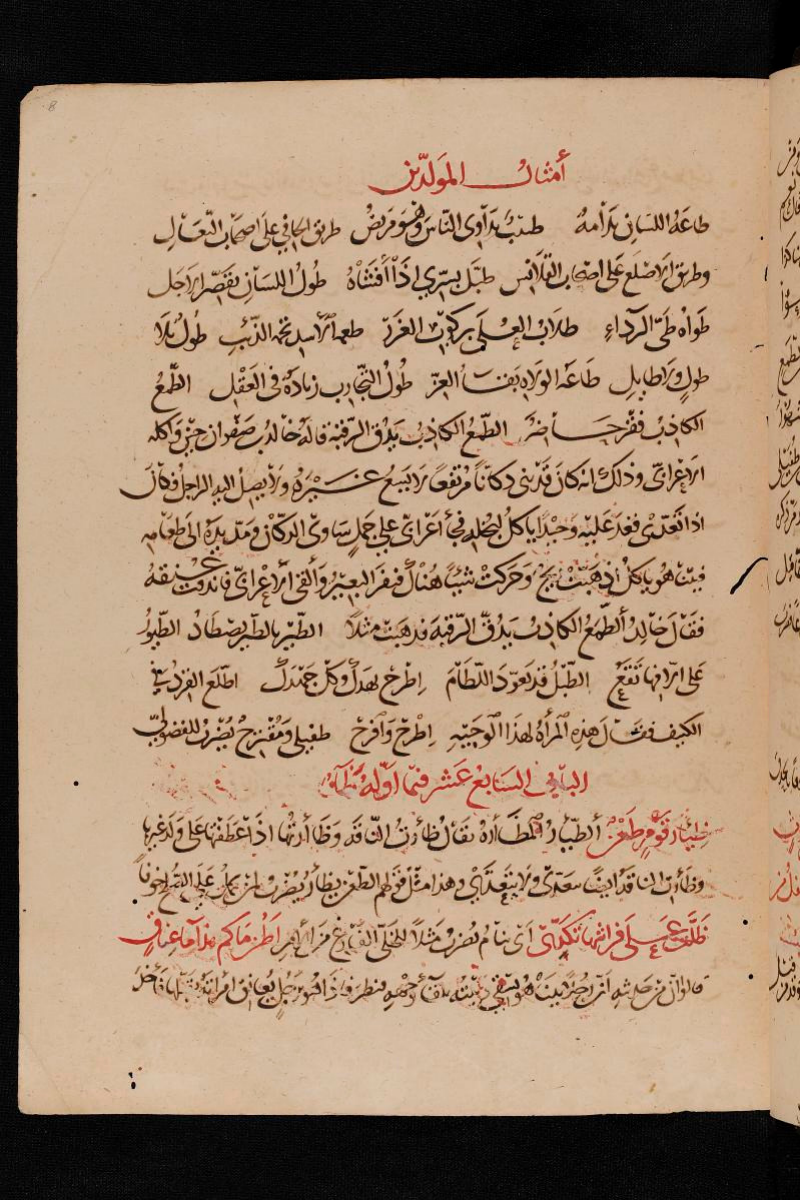 أمثال المولدين
طاعة اللسان ندامة طبيب يداوي الناس وهو مريض طريق الحافي على اصحاب النعال
وطريق الاصلع على اصحاب القلانس طبل بسري اذا أفشاه طول اللسان يقصر الاجل
طواه طي الرداء طلاب العلى بركوب الغرر طعمة الاسد تخمة الذئب طول بلا
طول ولا طايل طاعة الولاة بقاء العز طول التجارب زيادة في العقل الطمع
الكاذب فقر حاضر الطمع الكاذب يدق الرقبة قاله خالد بن صفوان حين واكله
الاعرابي وذلك انه كان قد بنى دكانا مرتفعا لا يسع غيره ولا يصل اليه الراجل فكان
اذا تغدى قعد عليه وحيدا ياكل لبخله فجا اعرابي على جمل ساوى الدكان ومد يده الى طعامه
فبينا هو ياكل اذ هبت ريح وحركت شيا هناك فنفر البعير وألقى الاعرابي فاندقت عنقه
فقال خالد ألطمع الكاذب يدق الرقبة فذهبت مثلا الطير بالطير يصطاد الطيور
على الافها تقع الطبل قد تعود اللطام اطرح نهدك وكل جهدك اطلع القرد في
الكنيف فقال هذه المرأة لهذا الوجيه اطرح وافرح طفيلي ومقترح يضرب للفضولي
الباب السابع عشر فيما اوله ظاء
ظئار قوم طعن ألظئار المظأرة يقال ظأرت الناقة وظأرتها اذا عطفتها على ولد غيرها
وظأرت الناقة ايضا يتعدى ولا يتعدى وهذا مثل قولهم الطعن يظأر يضرب لمن يحمل على الصلح خوفا
ظلت على فراشها تكرى اي تنام يضرب مثلا للخلي الفارغ
قالوا ان من حديثه ان رجلا بينا هو يسقي